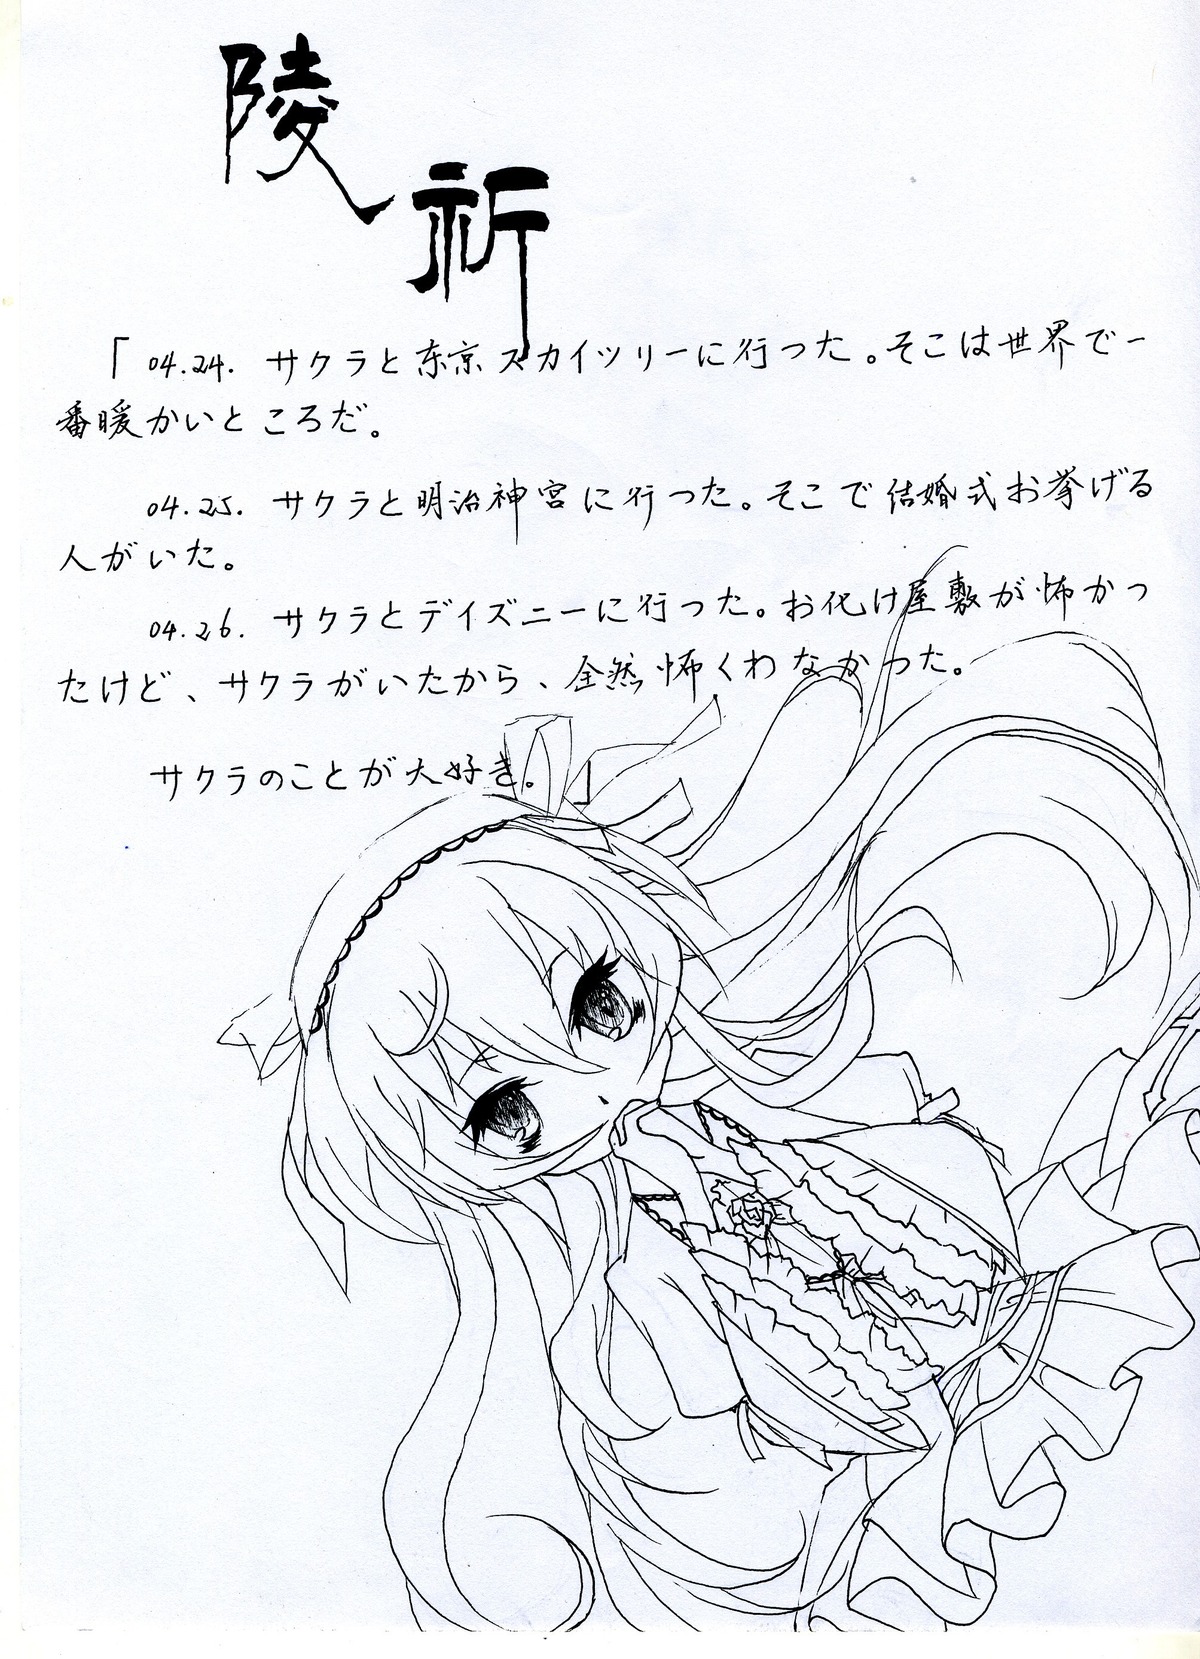 陵
祈
「04.24. サクラと东京スカイツリーに行った。そこは世界で一
番暖かいところだ。
04.25. サクラと明治神宮に行った。そこで结婚式お挙げる
人がいた。
04.26. サクラとデイズニーに行った。お化け屋敷が怖かっ
たけど、サクラがいたから、全然怖くわなかった。
サクラのことが大好き。」